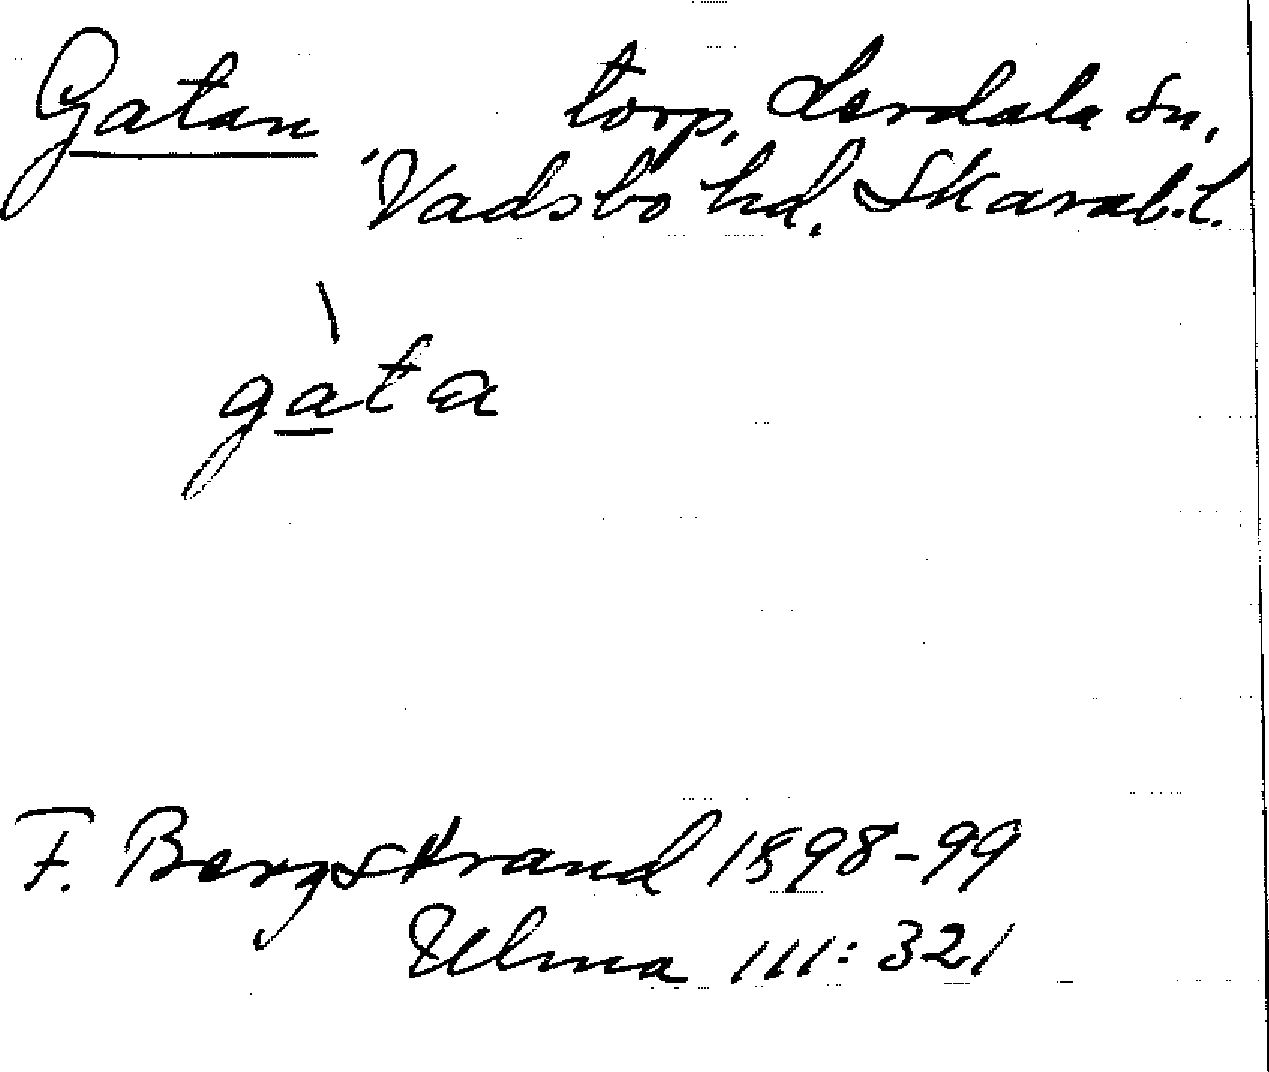 Gatan torp, Lerdala sn,
Vadsbo hd, Skarab.l.
gàta
F. Bergstrand 1898-99
Ulma 111:321